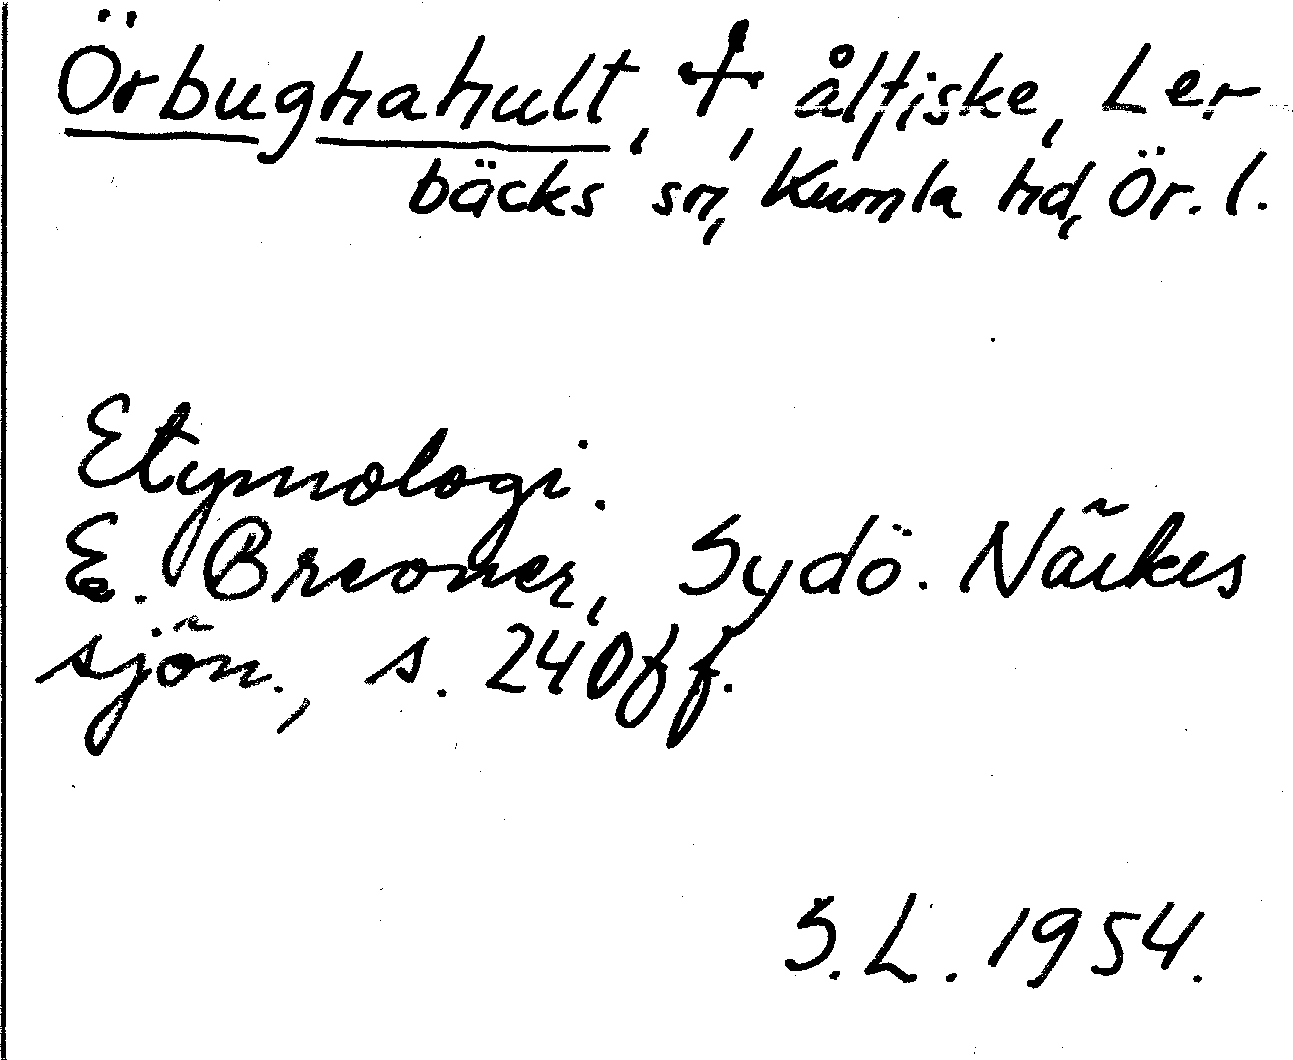 Örbughahult, †, ålfiske, Ler-
bäcks sn, Kumla hd, Ör. l.
Etymologi.
E. Breomer, Sydö. Närkes
sjön., s. 240ff.
S. L. 1954.